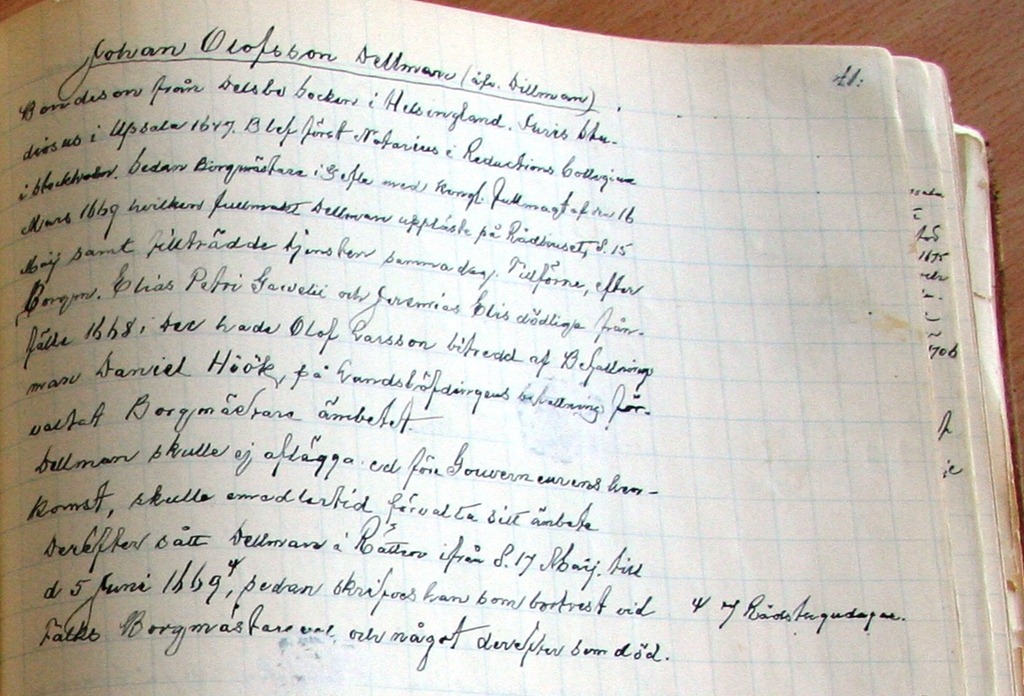 Johan Olofsson Dellman (äfv. Dillman).
41.
Bondeson från Delsbo Socken i Helsingland. Juris Stu-
diosus i Upsala 1647. Blef först Notarius i Reductions Collegium
i Stockholm. Sedan Borgmästare i Gefle med Kongl. fullmagt af den 16
Mars 1669 hvilken fullmakt Dellman uppläste på Rådhuset, d. 15
Maij samt tillträdde tjensten samma dag. Tillförne, efter
Borgm. Elias Petri Gavelii och Jeremias Elis dödliga från-
fälle 1668; Der hade Olof Larsson bitredd af Befallnings
man Daniel Höök, på Landshöfdingens befallning för-
valtat Borgmästare ämbetet.
Dellman skulle ej aflägga ed före Gouverneurens hem-
komst, skulle emedlertid förvalta sitt ämbete
Derefter satt Dellman i Rätten ifrån d. 17 Maij. till
d 5 Juni 1669, sedan skrifves han som bortrest vid
Falks Borgmästare val och något derefter som död.
7 Rådstugudagar.
1675
1706